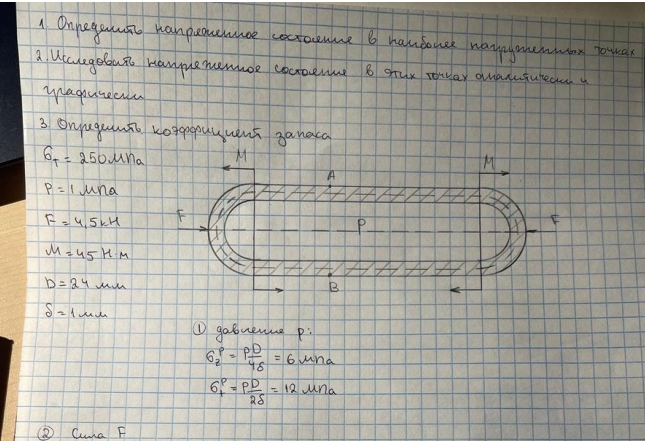 1. Определить напряженное состояние в наиболее нагруженных точках
2. Исследовать напряженное состояние в этих точках аналитически и
графически
3. Определить коэффициент запаса
σт = 250 МПа
P = 1 МПа
F = 4,5 кН
M = 45 Н·м
D = 24 мм
δ = 1 мм
M
M
A
F
P
F
B
① давление p:
σz^p = pD/4δ = 6 МПа
σt^p = pD/2δ = 12 МПа
② Сила F